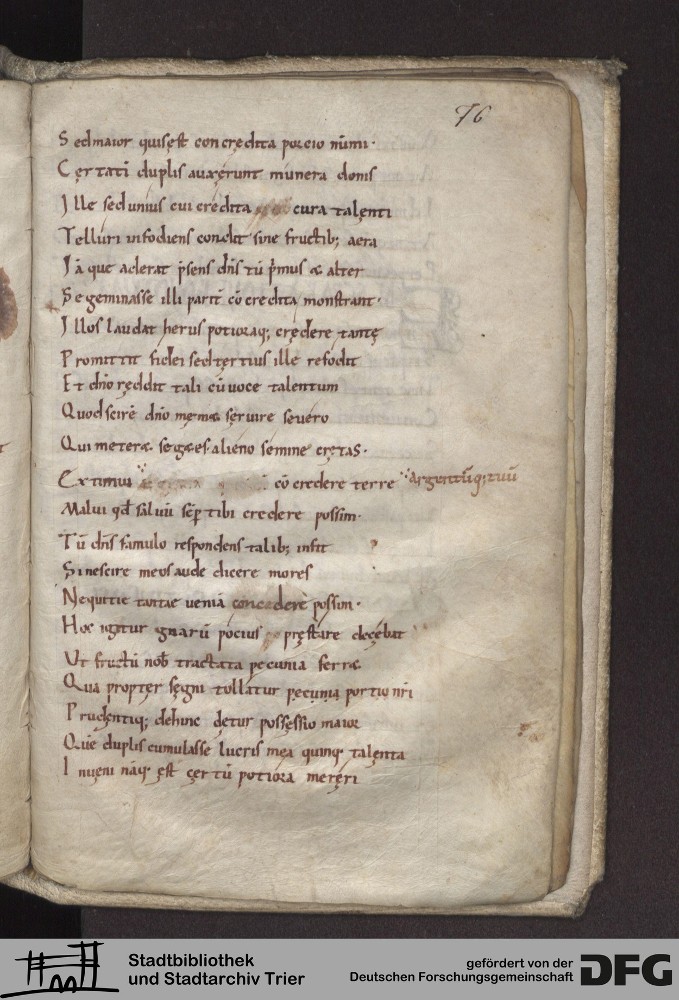 76
Sed maior quis est concredita porcio nūmi·
Certati duplis auxerunt munera donis
Ille sed unius cui credita cura talenti
Telluri infodiens condit sine fructib; aera
Iāque aderat p̄sens dn̄s tū p̄mus & alter
Se geminasse illi partē cō credita monstrant·
Illos laudat herus potioraq; credere tantę
Promittit fidei sed tertius ille refodit
Et dn̄o reddit tali cū uoce talentum
Quod scirē dn̄o mem& seruire seuero
Qui meter& seg&es alieno semine cretas·
Extimui cō credere terre argentūq; tuū
Malui qd̄ saluū sēp tibi credere possim·
Tū dn̄s famulo respondens talib; infit
Si nescire meos aude dicere mores
Nequitie tantae ueniā concedere possim·
Hoc igitur gnarū pocius pręstare decebat
Ut fructū nob̄ tractata pecunia ferr&
Qua propter segni tollatur pecunia portio nr̄i
Prudentiq; dehinc detur possessio maior
Quē duplis cumulasse lucris mea quinq; talenta
Inueni nāq; est certū potiora mereri
Stadtbibliothek
und Stadtarchiv Trier
gefördert von der
Deutschen Forschungsgemeinschaft
DFG